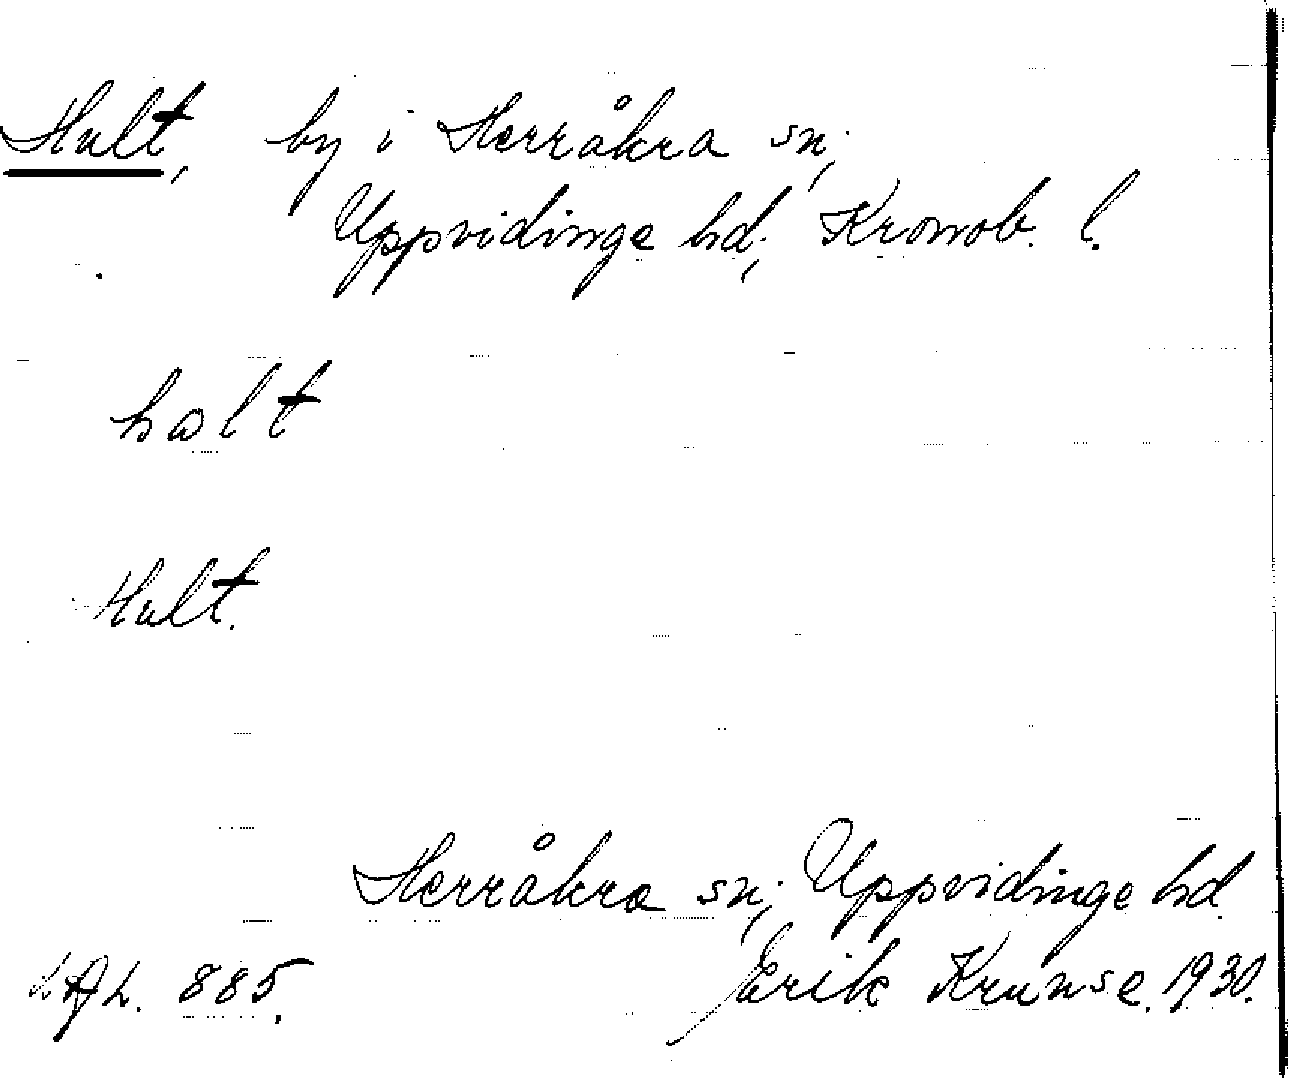 Hult, by i Herråkra sn;
Uppvidinge hd, Kronob. l.
halt
Hult.
Herråkra sn; Uppvidinge hd.
885. Erik Krunse. 1930.